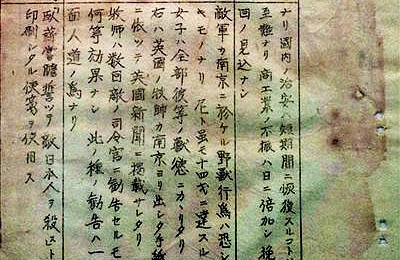 ナリ国内ノ治安ハ短期間ニ恢復スルコト
至難ナリ商工業ノ不振ハ日ニ倍加シ挽
回ノ見込ナシ
敵軍カ南京ニ於ケル野獣行為ハ恐シ
キモノナリ 凡ト雖モ十四才ニ達スル
女子ハ全部彼等ノ獣慾ニカヽリタリ
右ハ英国ノ牧師カ南京ヨリ出シタ手紙
ニ依ツテ英国新聞ニ掲載サレタリ
牧師ハ数回敵ノ司令官ニ勧告セルモ
何等効果ナシ 此ノ種ノ勧告ハ一
面人道ノ為ナリ
臥薪嘗膽誓ツテ敵日本人ヲ殺スト
印刷シタル便箋ヲ使用ス